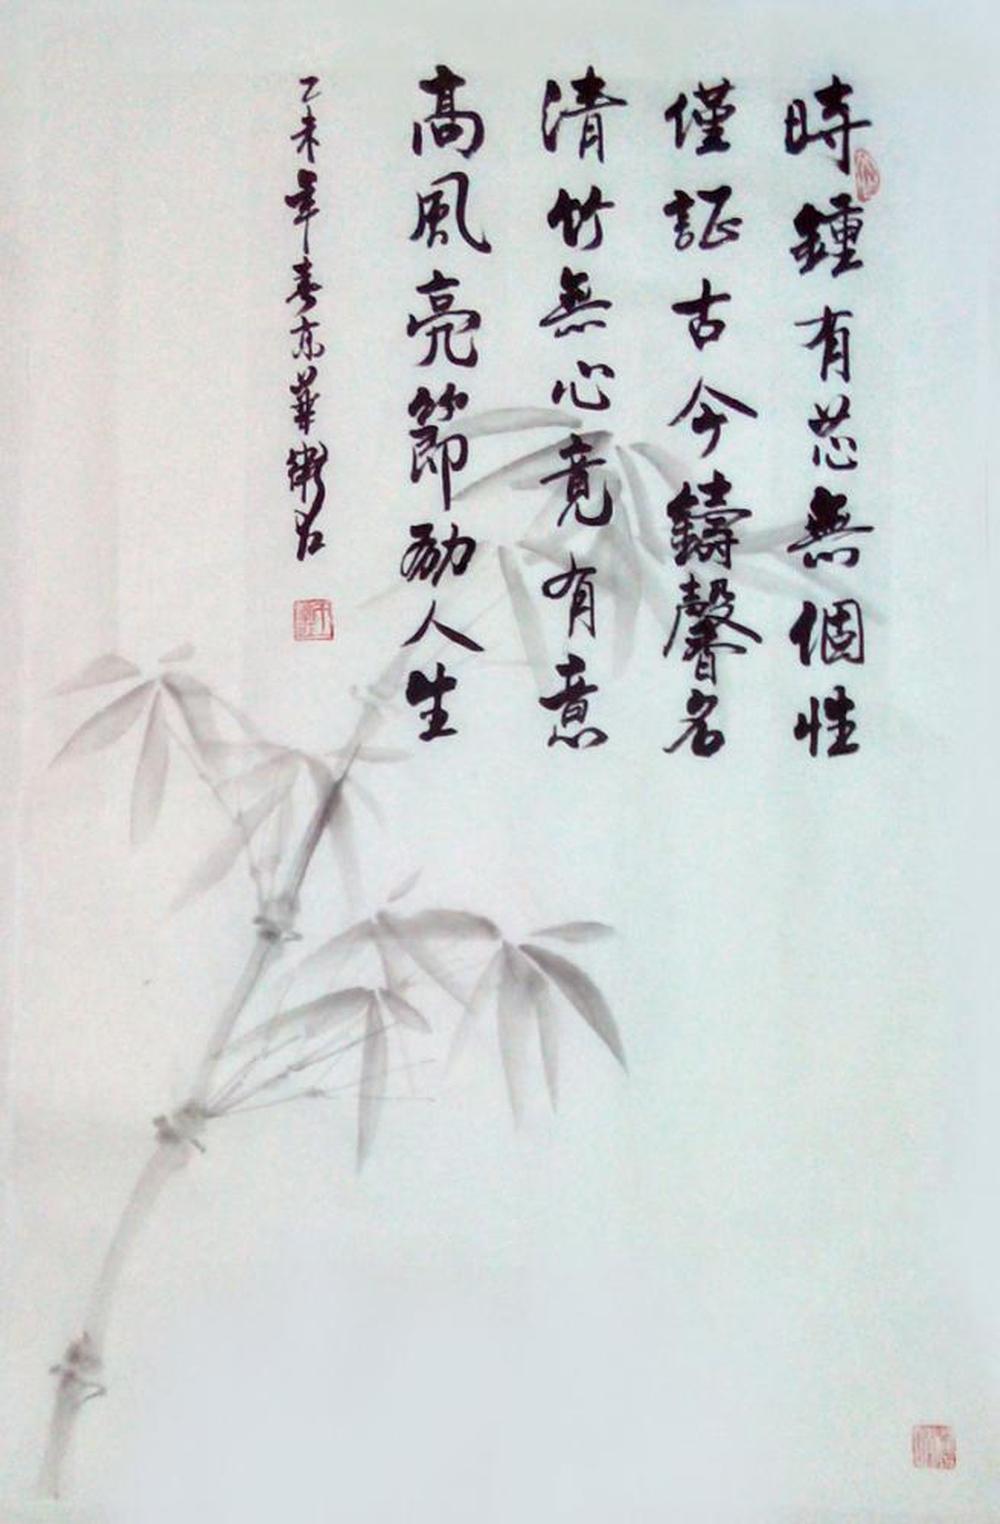 時鍾有芯無個性
僅証古今鑄馨名
清竹無心竟有意
高風亮節励人生
乙未年春京華衛